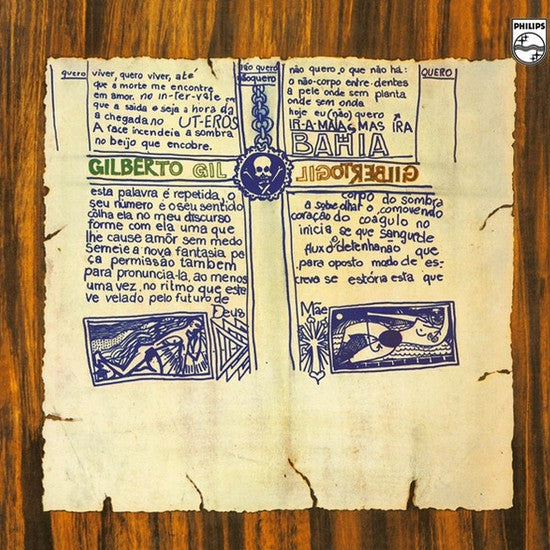 PHILIPS
quero
viver, quero viver, até
que a morte me encontre
em amor. no in-ter-vale
que a saída e seja a hora da
a chegada no UT-EROS
A face incendeia a sombra
no beijo que encobre.
não quero
não quero
não quero o que não há:
o não-corpo entre-dentes
a pele onde sem planta
onde sem onda
hoje eu (não) quero
IR-A-MAIAS MAS IRA
BAHIA
QUERO
GILBERTO GIL
GILBERTO GIL
esta palavra é repetida, o
seu número e o seu sentido
côlha ela no meu discurso
forme com ela uma que
lhe cause amôr sem medo
Semeie a nova fantasia pe
ça permissão também
para pronuncia-la, ao menos
uma vez, no ritmo que este
ve velado pelo futuro de
Deus
corpo do sombra
a sobe olhar o comovendo
coração do coagulo no
inicia se que sangue de
fluxo detenha não que
para oposto modo de es-
creva se estória esta que
Mãe